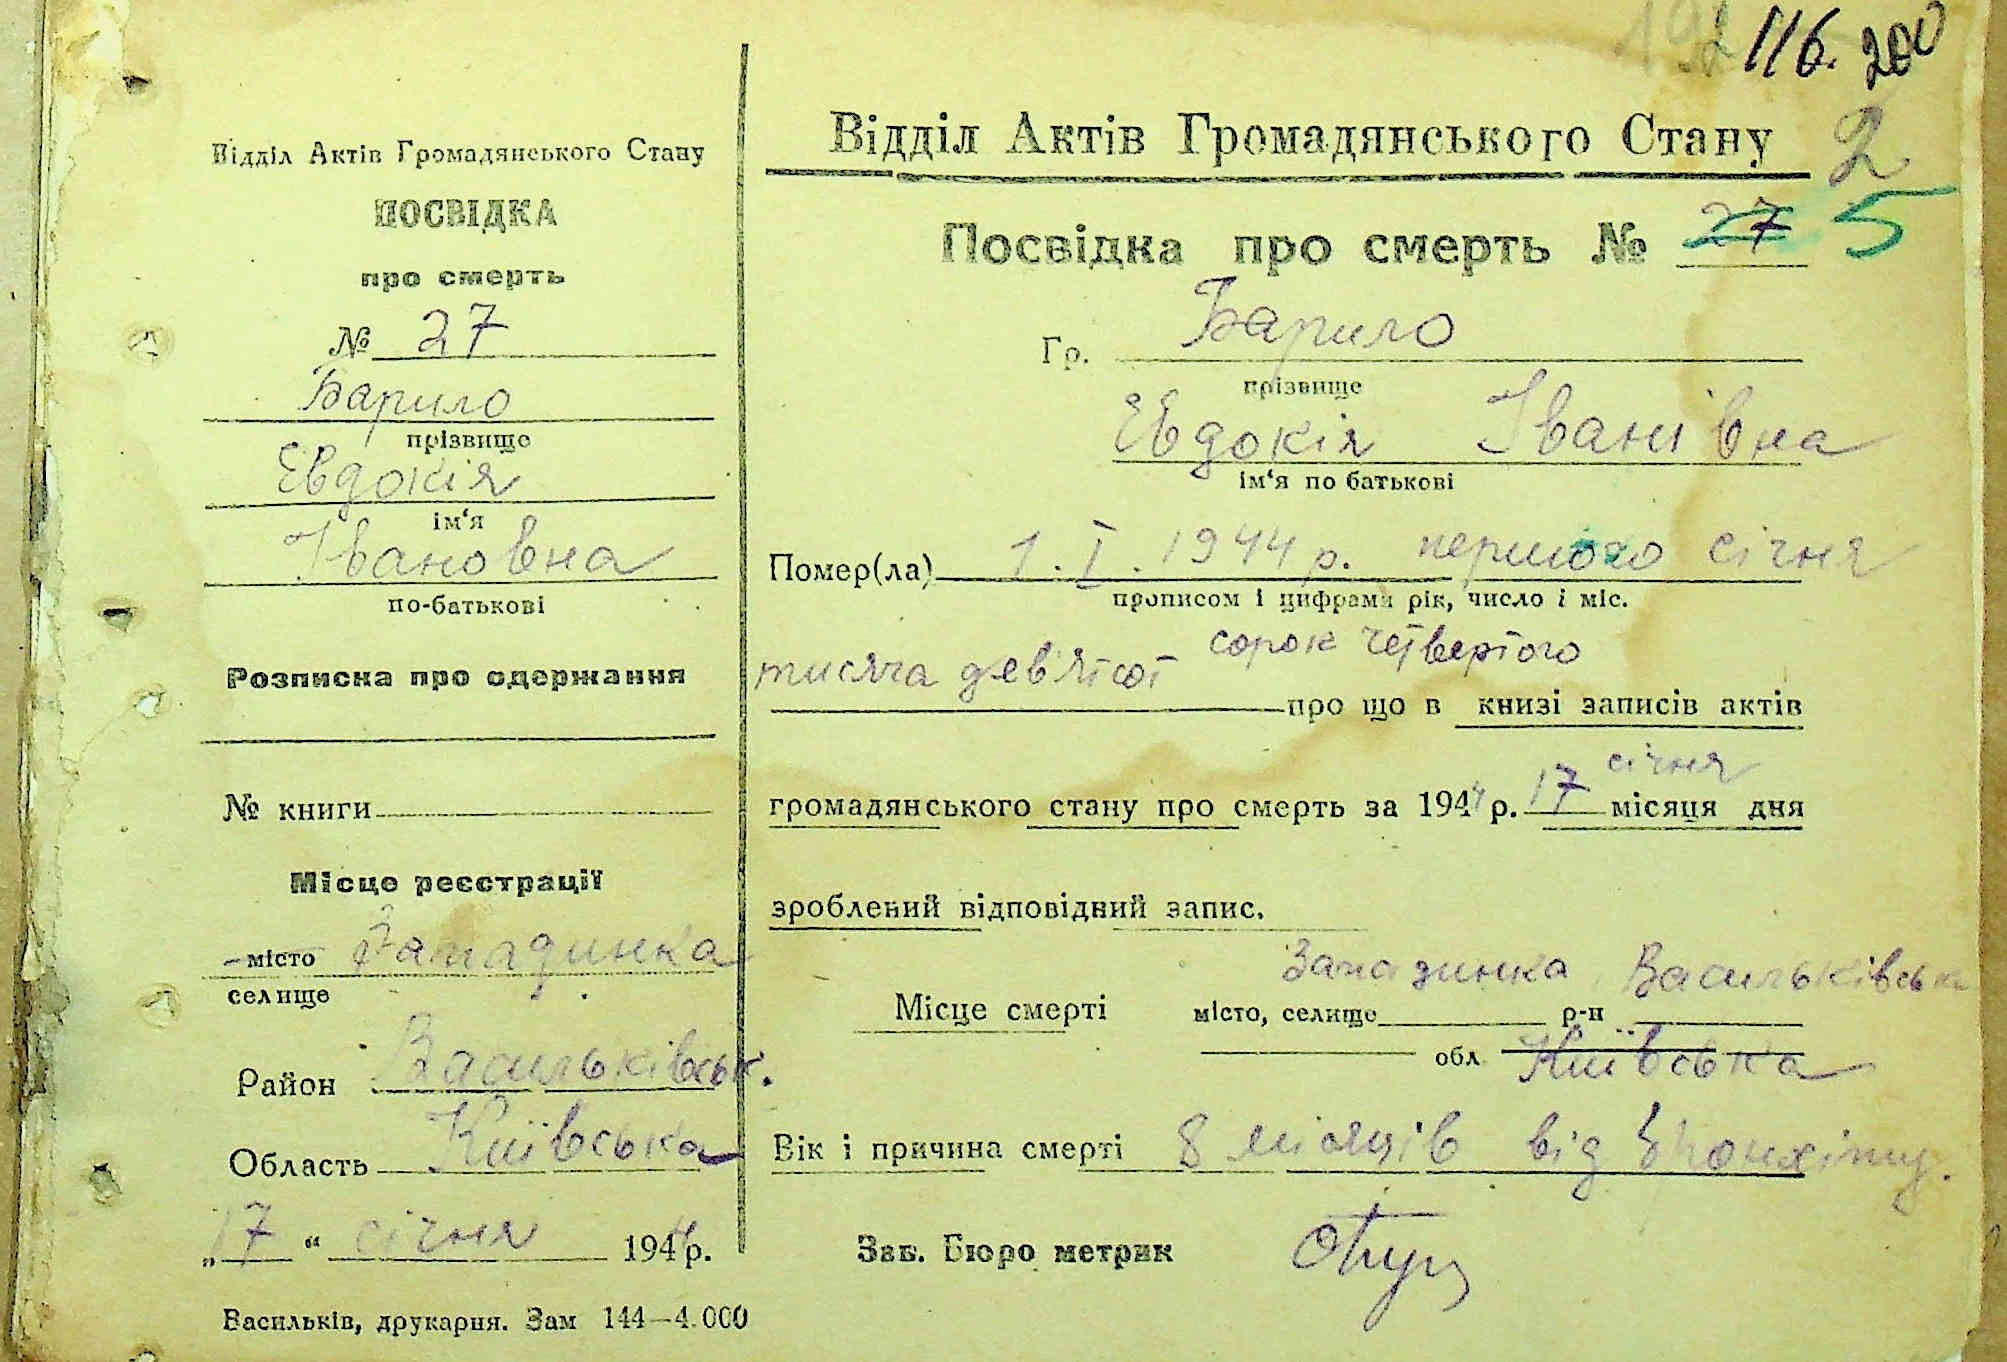 192 116. 200
Відділ Актів Громадянського Стану
ПОСВІДКА
про смерть
№ 27
Барило
прізвище
Евдокія
ім‘я
Івановна
по-батькові
Розписка про одержання
№ книги
Місце реєстрації
місто Западинка
селище
Район Васильківськ.
Область Київська
„17“ січня 1944 р.
Васильків, друкарня. Зам 144—4.000
Відділ Актів Громадянського Стану 2
Посвідка про смерть № 27 5
Гр. Барило
прізвище
Евдокія Іванівна
ім‘я по батькові
Помер(ла) 1.I.1944 р. першого січня
прописом і цифрами рік, число і міс.
тисяча дев'ятсот сорок четвертого
про що в книзі записів актів
січня
громадянського стану про смерть за 1944 р. 17 місяця дня
зроблений відповідний запис.
Западинка Васильківськ
Місце смерті місто, селище р-н
обл Київська
Вік і причина смерті 8 місяців від бронхіту.
Зав. Бюро метрик